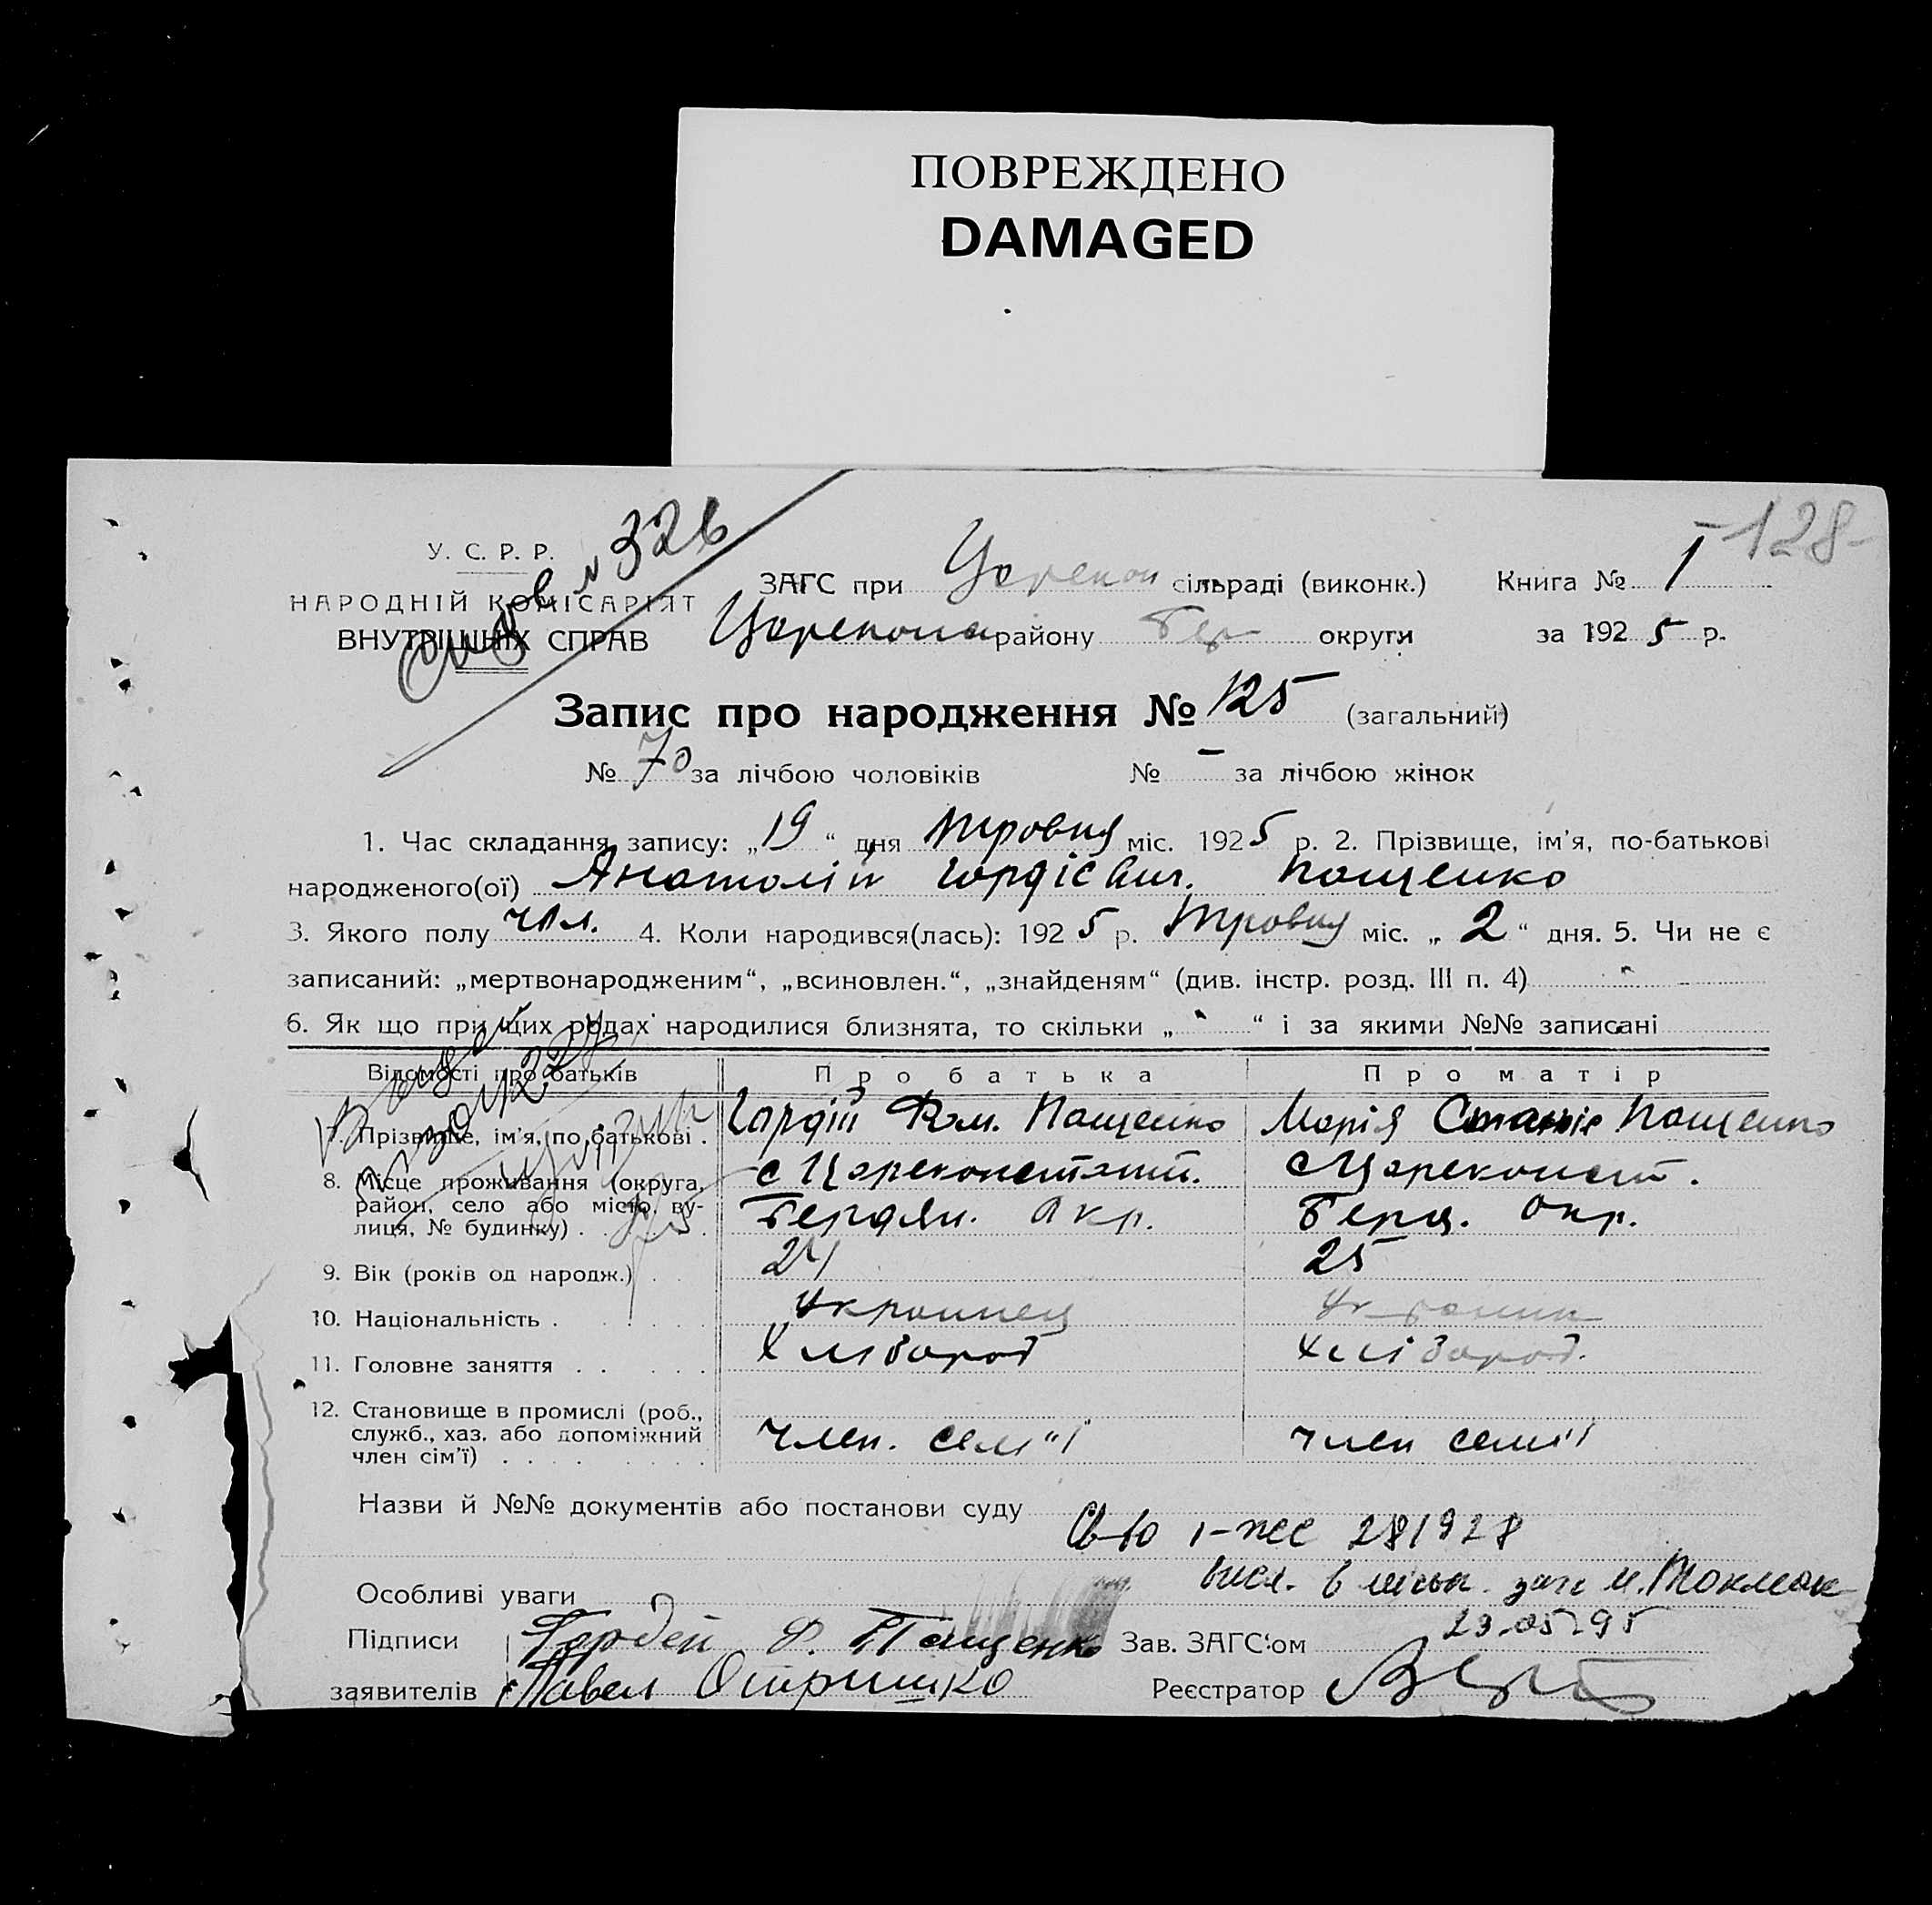 ПОВРЕЖДЕНО
DAMAGED
-128-
№ 326
У. С. Р. Р.
НАРОДНІЙ КОМІСАРІЯТ
ВНУТРІШНІХ СПРАВ
ЗАГС при Царекон сільраді (виконк.) Книга № 1
Царекона району Бер округи за 1925 р.
Запис про народження № 125 (загальний)
№ 70 за лічбою чоловіків № – за лічбою жінок
1. Час складання запису: „19“ дня травня міс. 1925 р. 2. Прізвище, ім’я, по-батькові
народженого(ої) Анатолій Гордієвич. Пащенко
3. Якого полу чол. 4. Коли народився(лась): 1925 р. травня міс. „2“ дня. 5. Чи не є
записаний: „мертвонародженим“, „всиновлен.“, „знайденям“ (див. інстр. розд. III п. 4)
6. Як що при цих родах народилися близнята, то скільки „ “ і за якими №№ записані
Відомості про батьків Про батька Про матір
7. Прізвище, ім’я, по батькові . Гордій Пащенко Марія Пащенко
8. Місце проживання (округа, с Цареконстант. с Цареконст.
район, село або місто, ву-
лиця, № будинку) . . . . Бердян. Окр. Берд. Окр.
9. Вік (років од народж.) . . 24 25
10. Національність . . . . . Українец Україн
11. Головне заняття . . . . Хлібороб Хлібороб.
12. Становище в промислі (роб.,
служб., хаз. або допоміжний член. сем"ї член семі"ї
член сім’ї) . . . . . . . .
Назви й №№ документів або постанови суду
Св-во 1-ЖС 281928
Особливі уваги м. Токмак
29.05.95
Підписи Гордей Ф. Пащенко Зав. ЗАГС‘ом
заявителів Павел Реєстратор